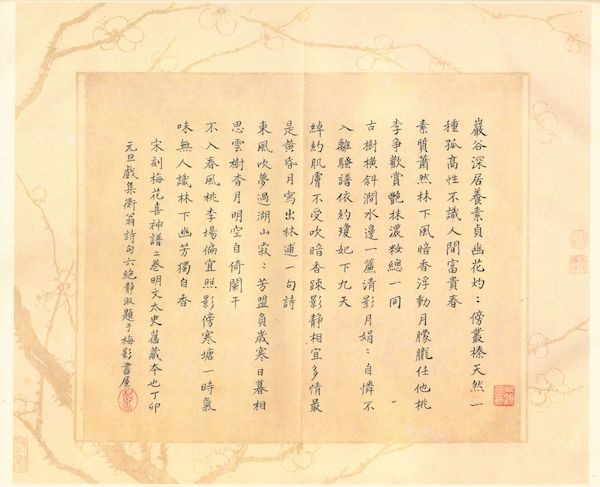 巖谷深居養素貞幽花灼〻傍叢榛天然一
種孤高性不識人間富貴春
素質蕭然林下風暗香浮動月朦朧任他桃
李爭歡賞艷抹濃妝總一同
古樹橫斜澗水邊一簾清影月娟〻自憐不
入離騷譜依約瓊妃下九天
綽約肌膚不受吹暗香疎影靜相宜多情最
是黃昏月寫出林逋一句詩
東風吹夢過湖山寂〻芳盟負歲寒日暮相
思雲樹杳月明空自倚闌干
不入春風桃李場偏宜照影傍寒塘一時氣
味無人識林下幽芳獨自香
宋刻梅花喜神譜二卷明文太史舊藏本也丁卯
元旦戲集衡翁詩句六絶靜淑題于梅影書屋